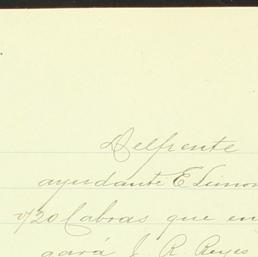 Delfrente
ayudante E. Limon
v/20 Cabras que en
gará J. R. Reyes